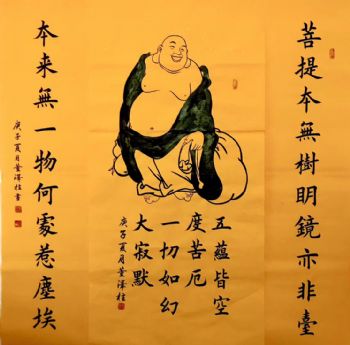 菩提本無樹明鏡亦非臺
五蘊皆空
度苦厄
一切如幻
大寂默
庚子夏月
本来無一物何處惹塵埃
庚子夏月